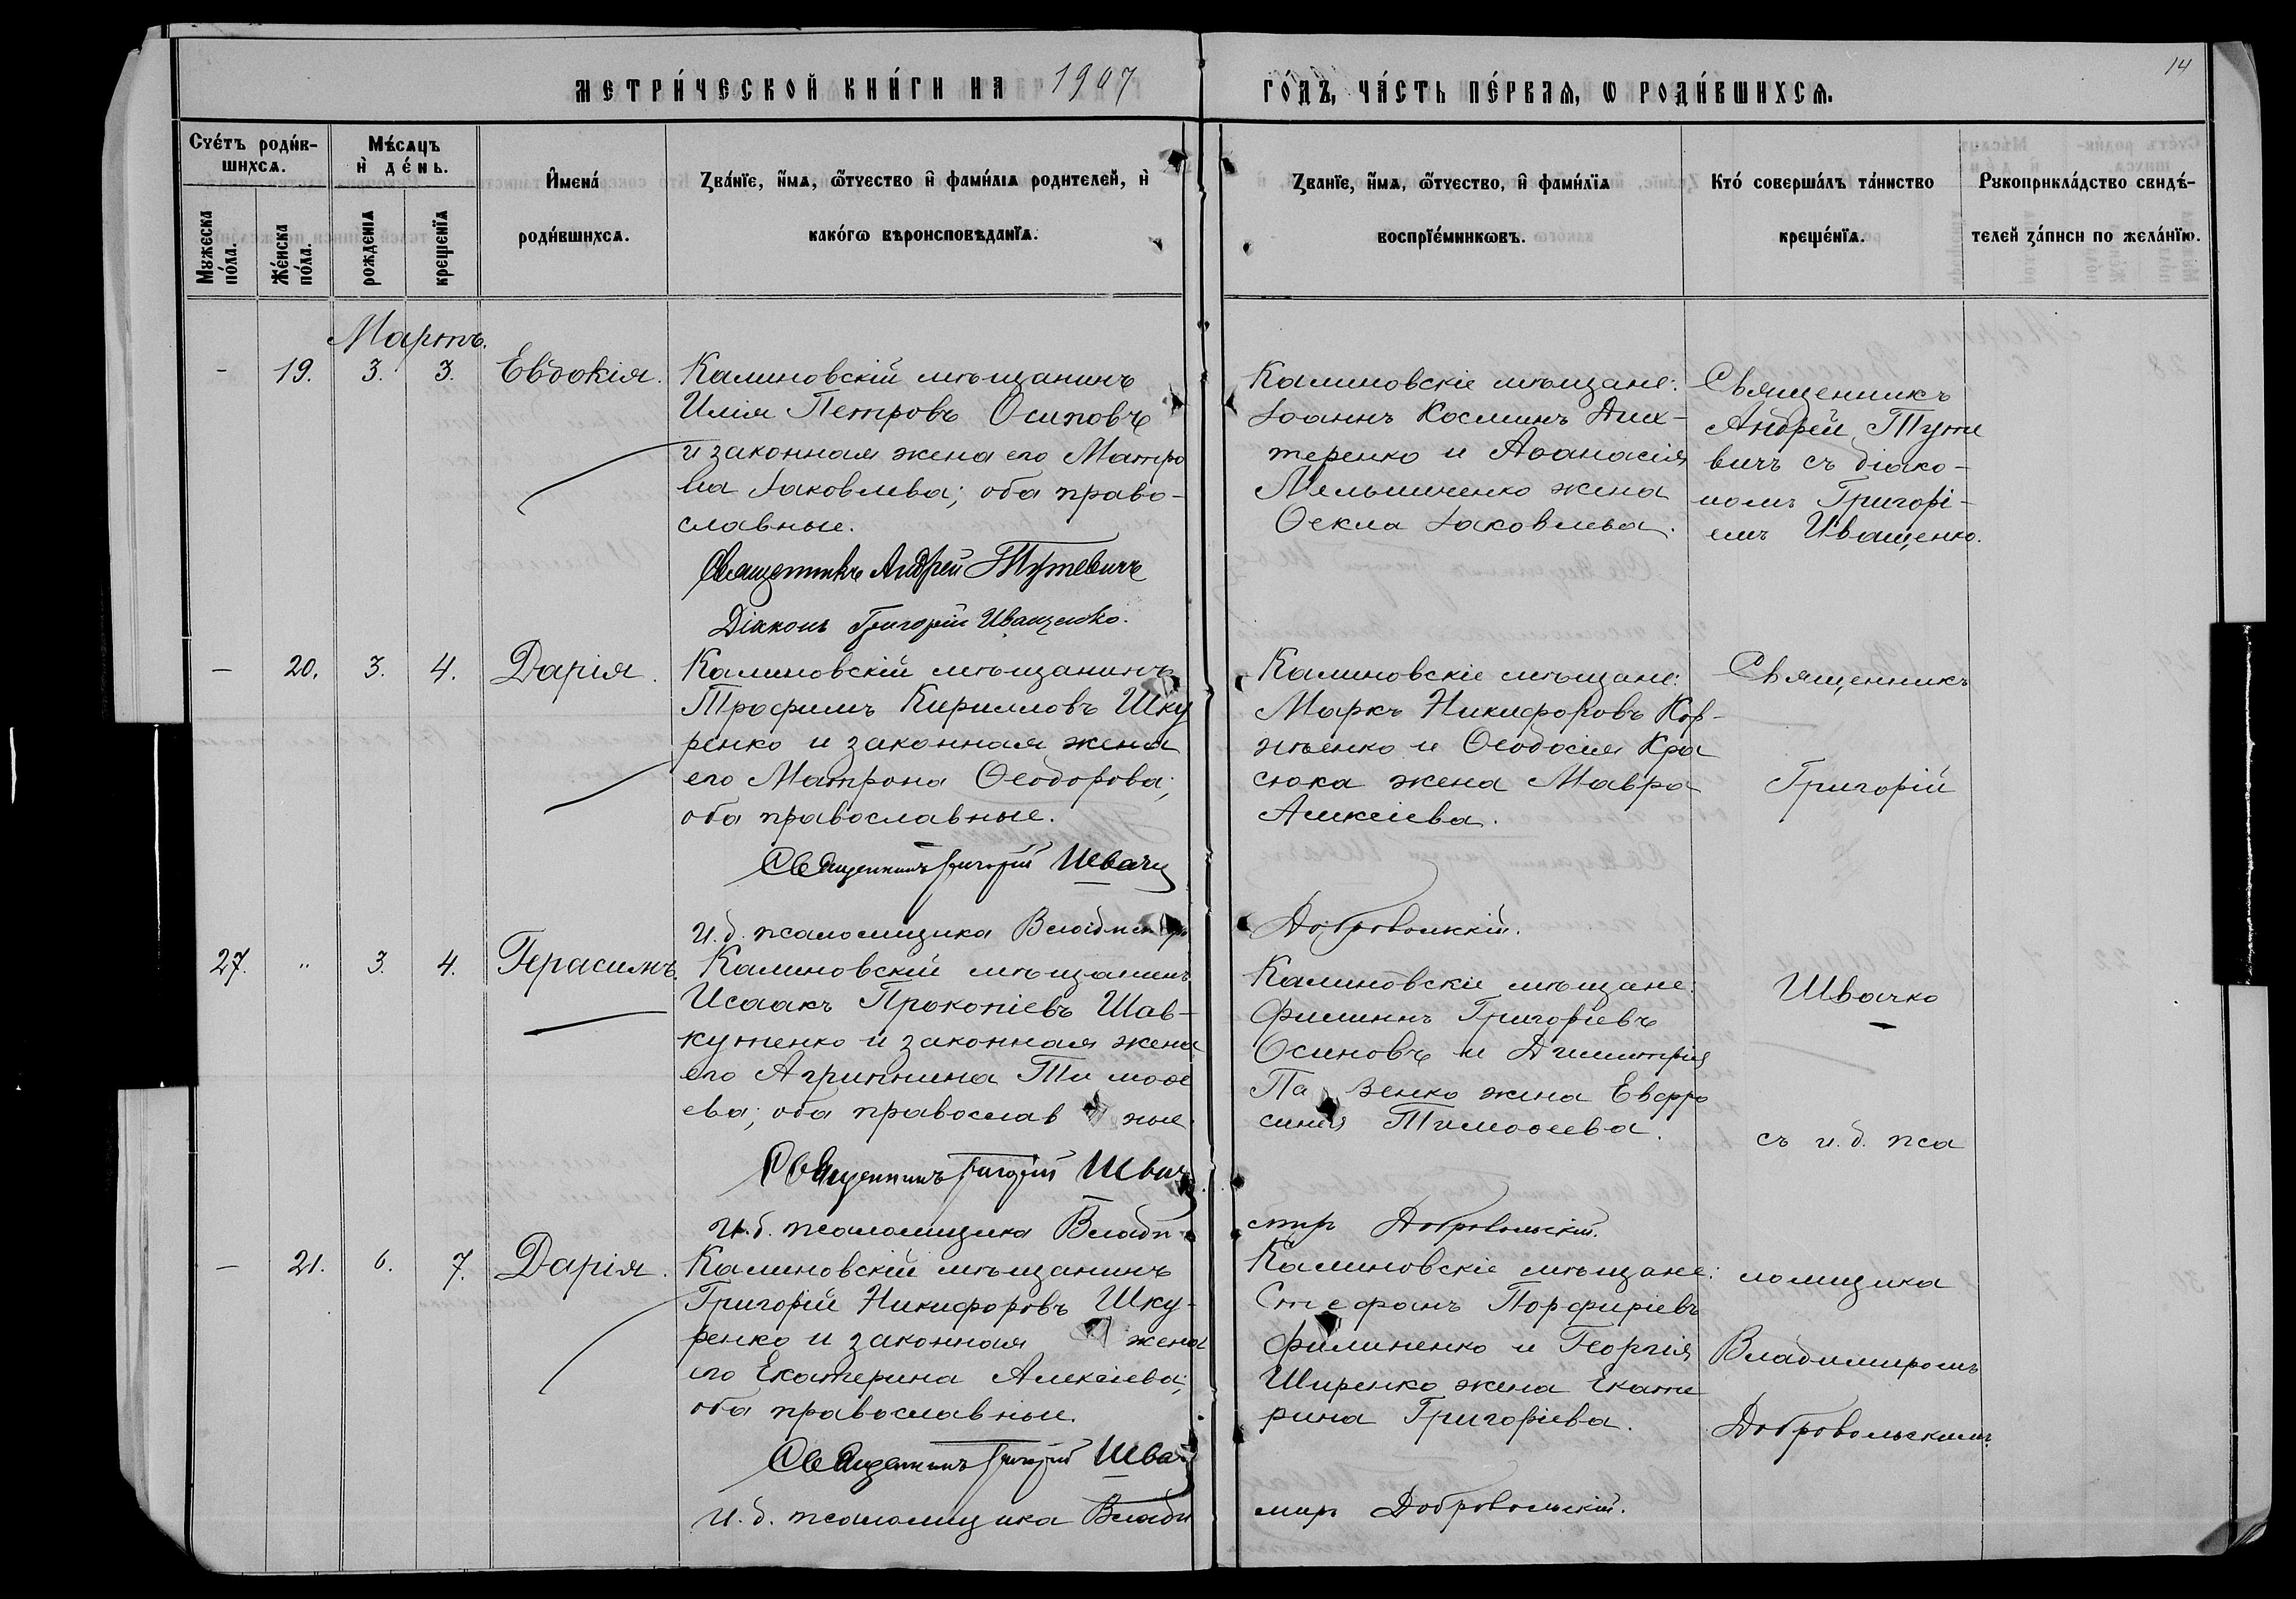 14
МЕТРИ́ЧЕСКОЙ КНИ́ГИ НА 1907 ГО́ДЪ, ЧА́СТЬ ПЕ́РВАѦ, Ѡ РОДИ́ВШИХСѦ.
Сче́тъ роди́в-
шихсѧ.
Мужеска по́ла.
Же́нска по́ла.
Мѣ́сѧцъ
и҆ де́нь.
рожденїѧ
крещенїѧ
И҆мена́
роди́вшихсѧ.
Зва́нїе, и҆́мѧ, ѻ҆́тчество и҆ фами́лїѧ родителей, и҆
како́гѡ вѣроисповѣданїѧ.
Званїе, и҆́мѧ, ѻ҆́тчество, и҆ фами́лїѧ
воспрїе́мникѡвъ.
Кто́ соверша́лъ та́инство
креще́нїѧ.
Рукоприкла́дство свидѣ́-
телей за́писи по жела́нїю.
Мартъ.
- 19. 3. 3. Евдокія.
Калиновскій мѣщанинъ
Илія Петровъ Осиповъ
и законная жена его Матро
на Іаковлева; оба право-
славные.
Священникъ Андрей Тутевичъ
Діаконъ Григорій Иващенко.
Калиновскіе мѣщане:
Іоаннъ Косминъ Дих-
теренко и Аѳанасія
Мельниченко жена
Ѳекла Іаковлева.
Священникъ
Андрей Туте
вичъ съ діако-
номъ Григорі-
емъ Иващенко.
— 20. 3. 4. Дарія.
Калиновскій мѣщанинъ
Трофимъ Кирилловъ Шку
ренко и законная жена
его Матрона Ѳеодорова;
оба православные.
Священникъ Григорій Швачк
и. д. псаломщика Владимір
Калиновскіе мѣщане:
Маркъ Никифоровъ Кор-
нѣенко и Ѳеодосія Кра
сюка жена Мавра
Алексіева.
Добровольскій.
Священникъ
Григорій
27. " 3. 4. Герасимъ.
Калиновскій мѣщанинъ
Исаакъ Прокопіевъ Шав-
кутенко и законная жена
его Агриппина Тимоѳе
ева; оба православ ные.
Священникъ Григорій Швач
и. д. псаломщика Влади
Калиновскіе мѣщане:
Филиппъ Григоріевъ
Осиповъ и Димитрія
Па зенко жена Евфро
синія Тимоѳеева.
миръ Добровольскій.
Швачко
съ и. д. пса
— 21. 6. 7. Дарія.
Калиновскій мѣщанинъ
Григорій Никифоровъ Шку-
ренко и законная жена
его Екатерина Алексіева;
оба православные.
Священникъ Григорій Швач
и. д. псаломщика Влади
Калиновскіе мѣщане:
Стефанъ Порфиріевъ
Филиненко и Георгія
Ширенко жена Екате
рина Григоріева.
миръ Добровольскій.
ломщика
Владимиромъ
Добровольскимъ.